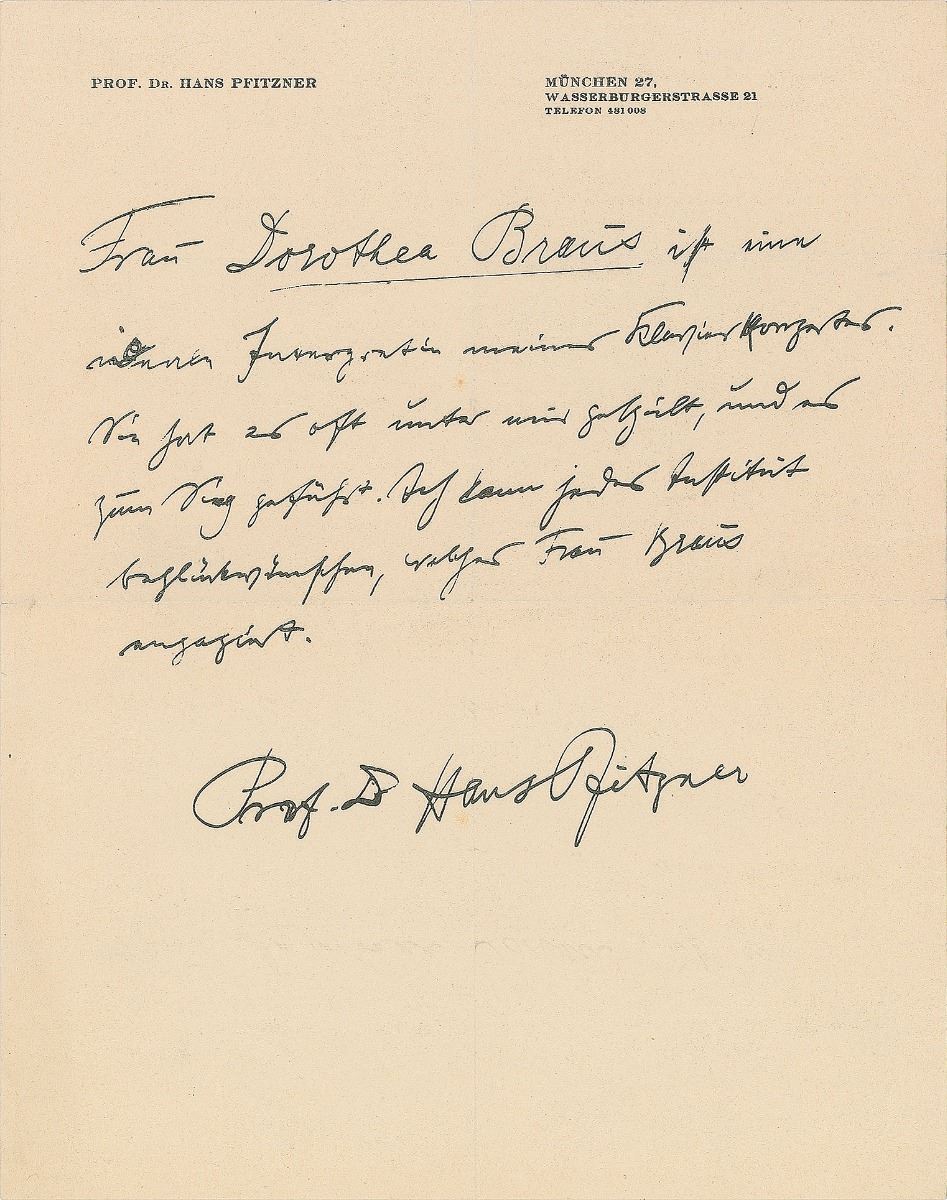 PROF. DR. HANS PFITZNER
MÜNCHEN 27,
WASSERBURGERSTRASSE 21
TELEFON 481008
Frau Dorothea Braus ist eine
idealen Interpretin meines Klavierkonzertes.
Sie hat es oft unter mir gespielt, und es
zum Sieg geführt. Ich kann jedes Institut
beglückwünschen, welches Frau Braus
engagiert.
Prof. D Hans Pfitzner